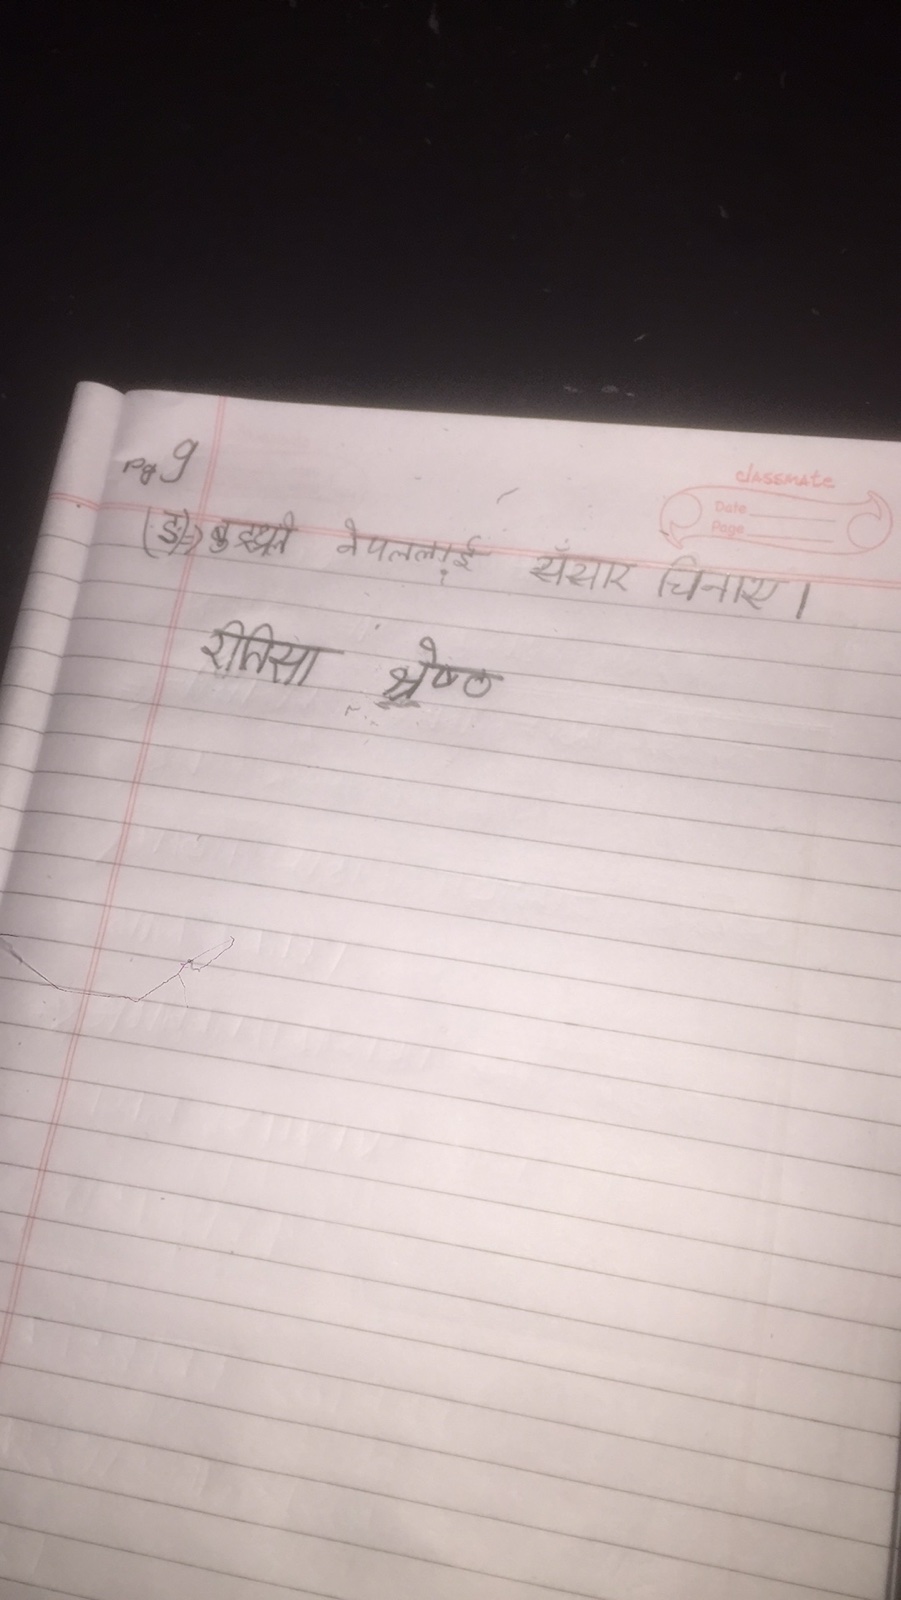 Pg 9
classmate
Date
Page
(ङ)⇒ बुद्धले नेपललाई सँसार चिनाए।
रीतिसा श्रेष्ठ